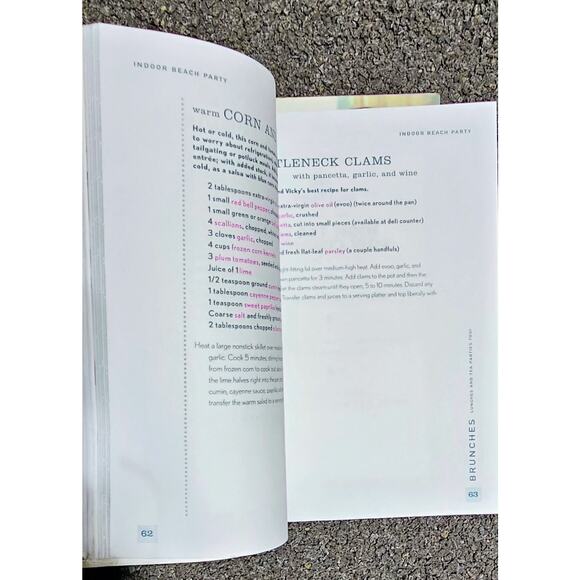 INDOOR BEACH PARTY
warm CORN AN
Hot or cold, this corn and
to worry about refrigeration
tailgating or potluck meals
entrée; with added stock, it
cold, as a salsa with blue corn
2 tablespoons extra-virgin
1 small red bell pepper,
1 small green or orange
4 scallions, chopped, white
3 cloves garlic, chopped
4 cups frozen corn kernels
3 plum tomatoes, seeded and
Juice of 1 lime
1/2 teaspoon ground cumin
1 tablespoon cayenne pepper
1 teaspoon sweet paprika
Coarse salt and freshly ground
2 tablespoons chopped
Heat a large nonstick skillet over
garlic. Cook 5 minutes, stirring
from frozen corn to cook out
the lime halves right into the
cumin, cayenne sauce, paprika
transfer the warm salad to a
62
INDOOR BEACH PARTY
TLENECK CLAMS
with pancetta, garlic, and wine
nd Vicky's best recipe for clams.
extra-virgin olive oil (evoo) (twice around the pan)
garlic, crushed
cut into small pieces (available at deli counter)
cleaned
wine
fresh flat-leaf parsley (a couple handfuls)
lid over medium-high heat. Add evoo, garlic, and
pancetta for 3 minutes. Add clams to the pot and then the
the clams steam until they open, 5 to 10 minutes. Discard any
Transfer clams and juices to a serving platter and top liberally with
BRUNCHES LUNCHES AND TEA PARTIES TOO!
63